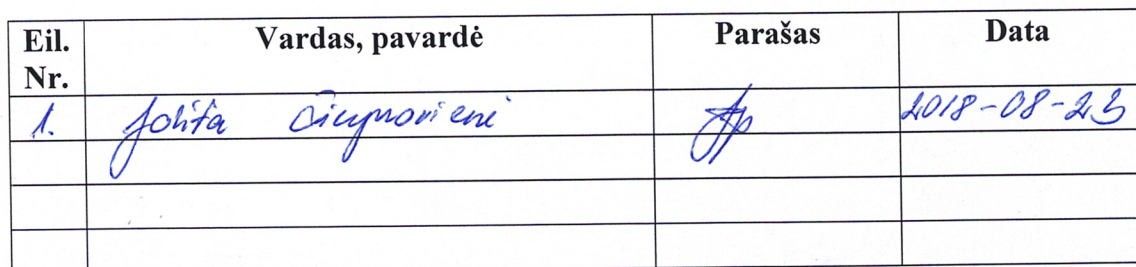 Eil. Nr. Vardas, pavardė Parašas Data
1. Jolita 2018-08-23